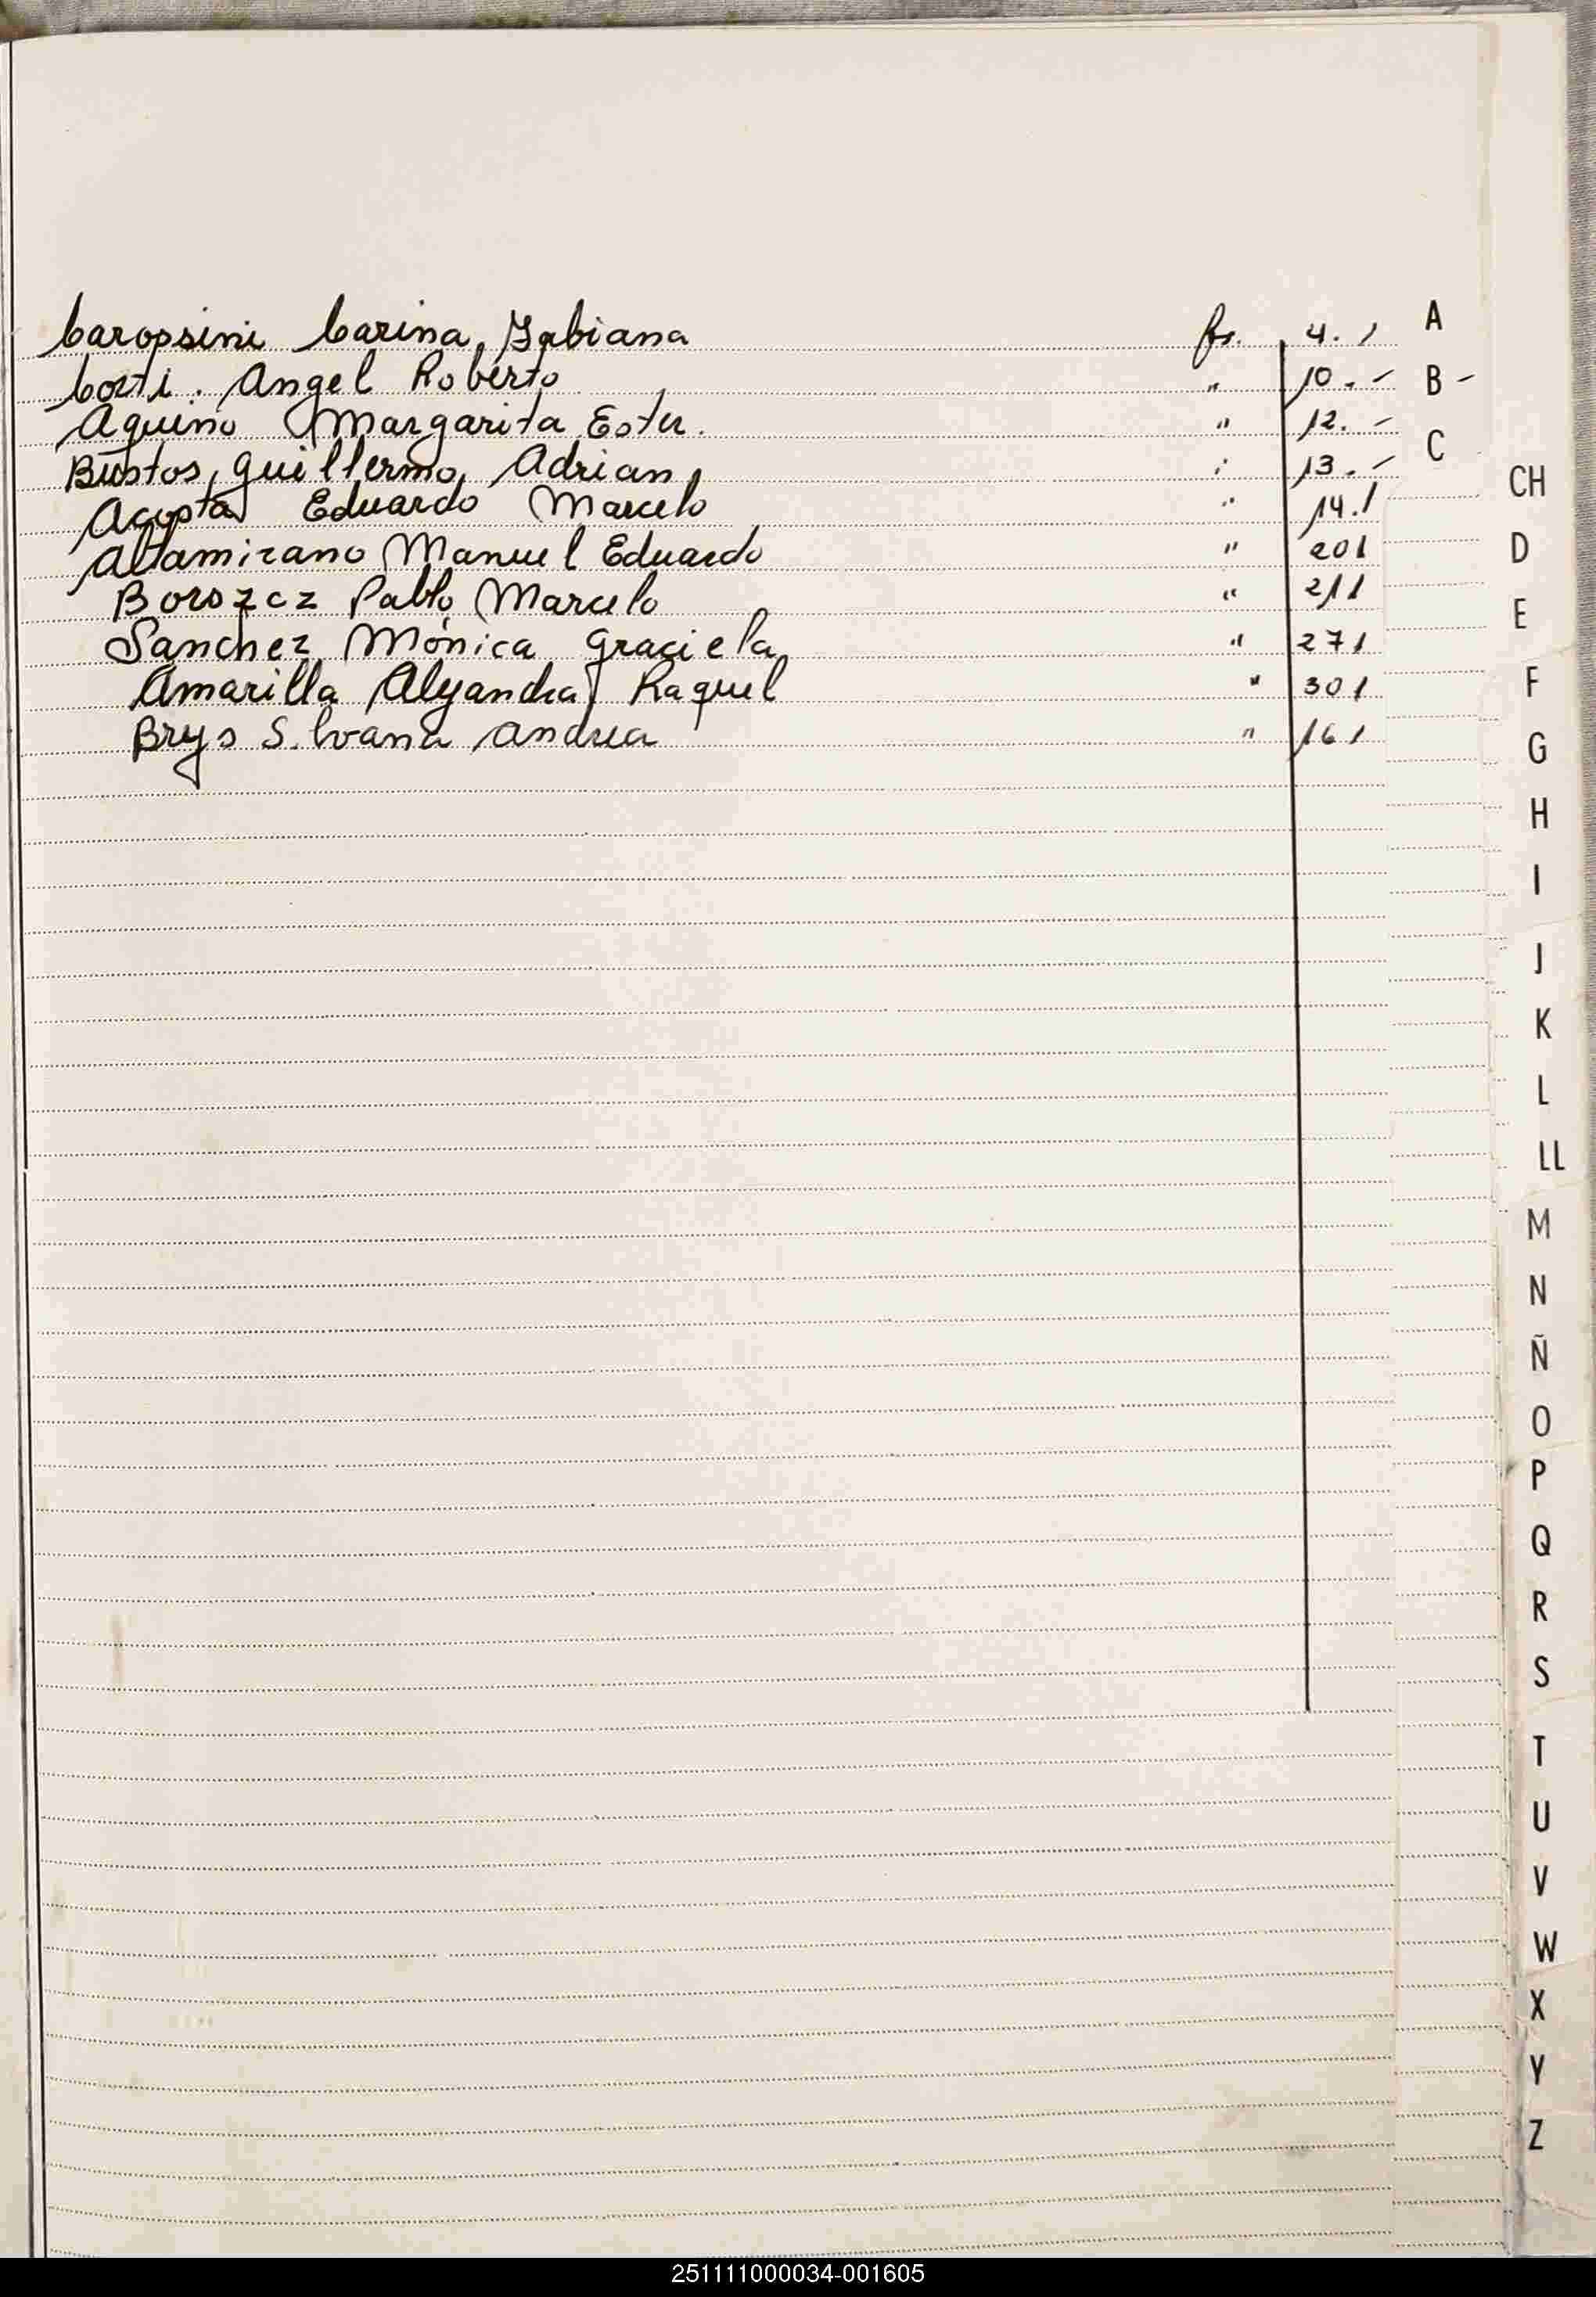 Caropsini Carina Fabiana fs. 4. /
Corti. Angel Roberto " 10. -
Aquino Margarita Ester. " 12. -
Bustos, Guillermo Adrian " 13. -
Acosta Eduardo Marcelo " 14. /
Altamirano Manuel Eduardo " 20 /
Boroscz Pablo Marcelo " 21 /
Sanchez Mónica Graciela " 27 /
Amarilla Alejandra Raquel " 30 /
Brys Silvana Andrea " 16 /
A
B -
C
CH
D
E
F
G
H
I
J
K
L
LL
M
N
Ñ
O
P
Q
R
S
T
U
V
W
X
Y
Z
251111000034-001605